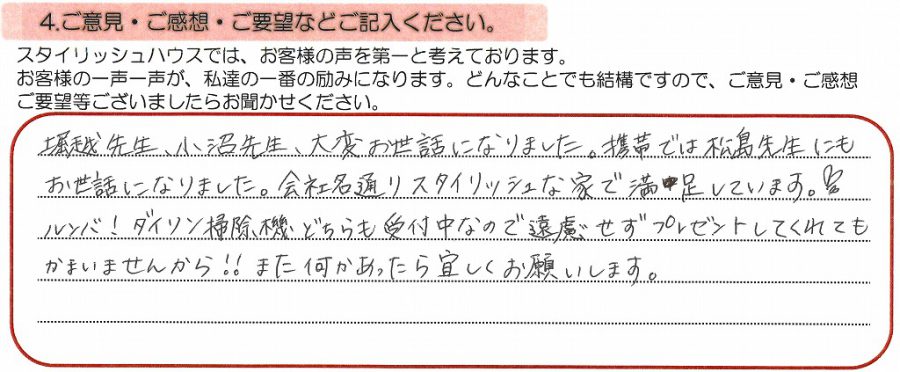 4.ご意見・ご感想・ご要望などご記入ください。
スタイリッシュハウスでは、お客様の声を第一と考えております。
お客様の一声一声が、私達の一番の励みになります。どんなことでも結構ですので、ご意見・ご感想
ご要望等ございましたらお聞かせください。
堀越先生、小沼先生、大変お世話になりました。携帯では松島先生にも
お世話になりました。会社名通りスタイリッシュな家で満足しています。
ルンバ！ダイソン掃除機どちらも受付中なので遠慮せずプレゼントしてくれても
かまいませんから!!また何かあったら宜しくお願いします。